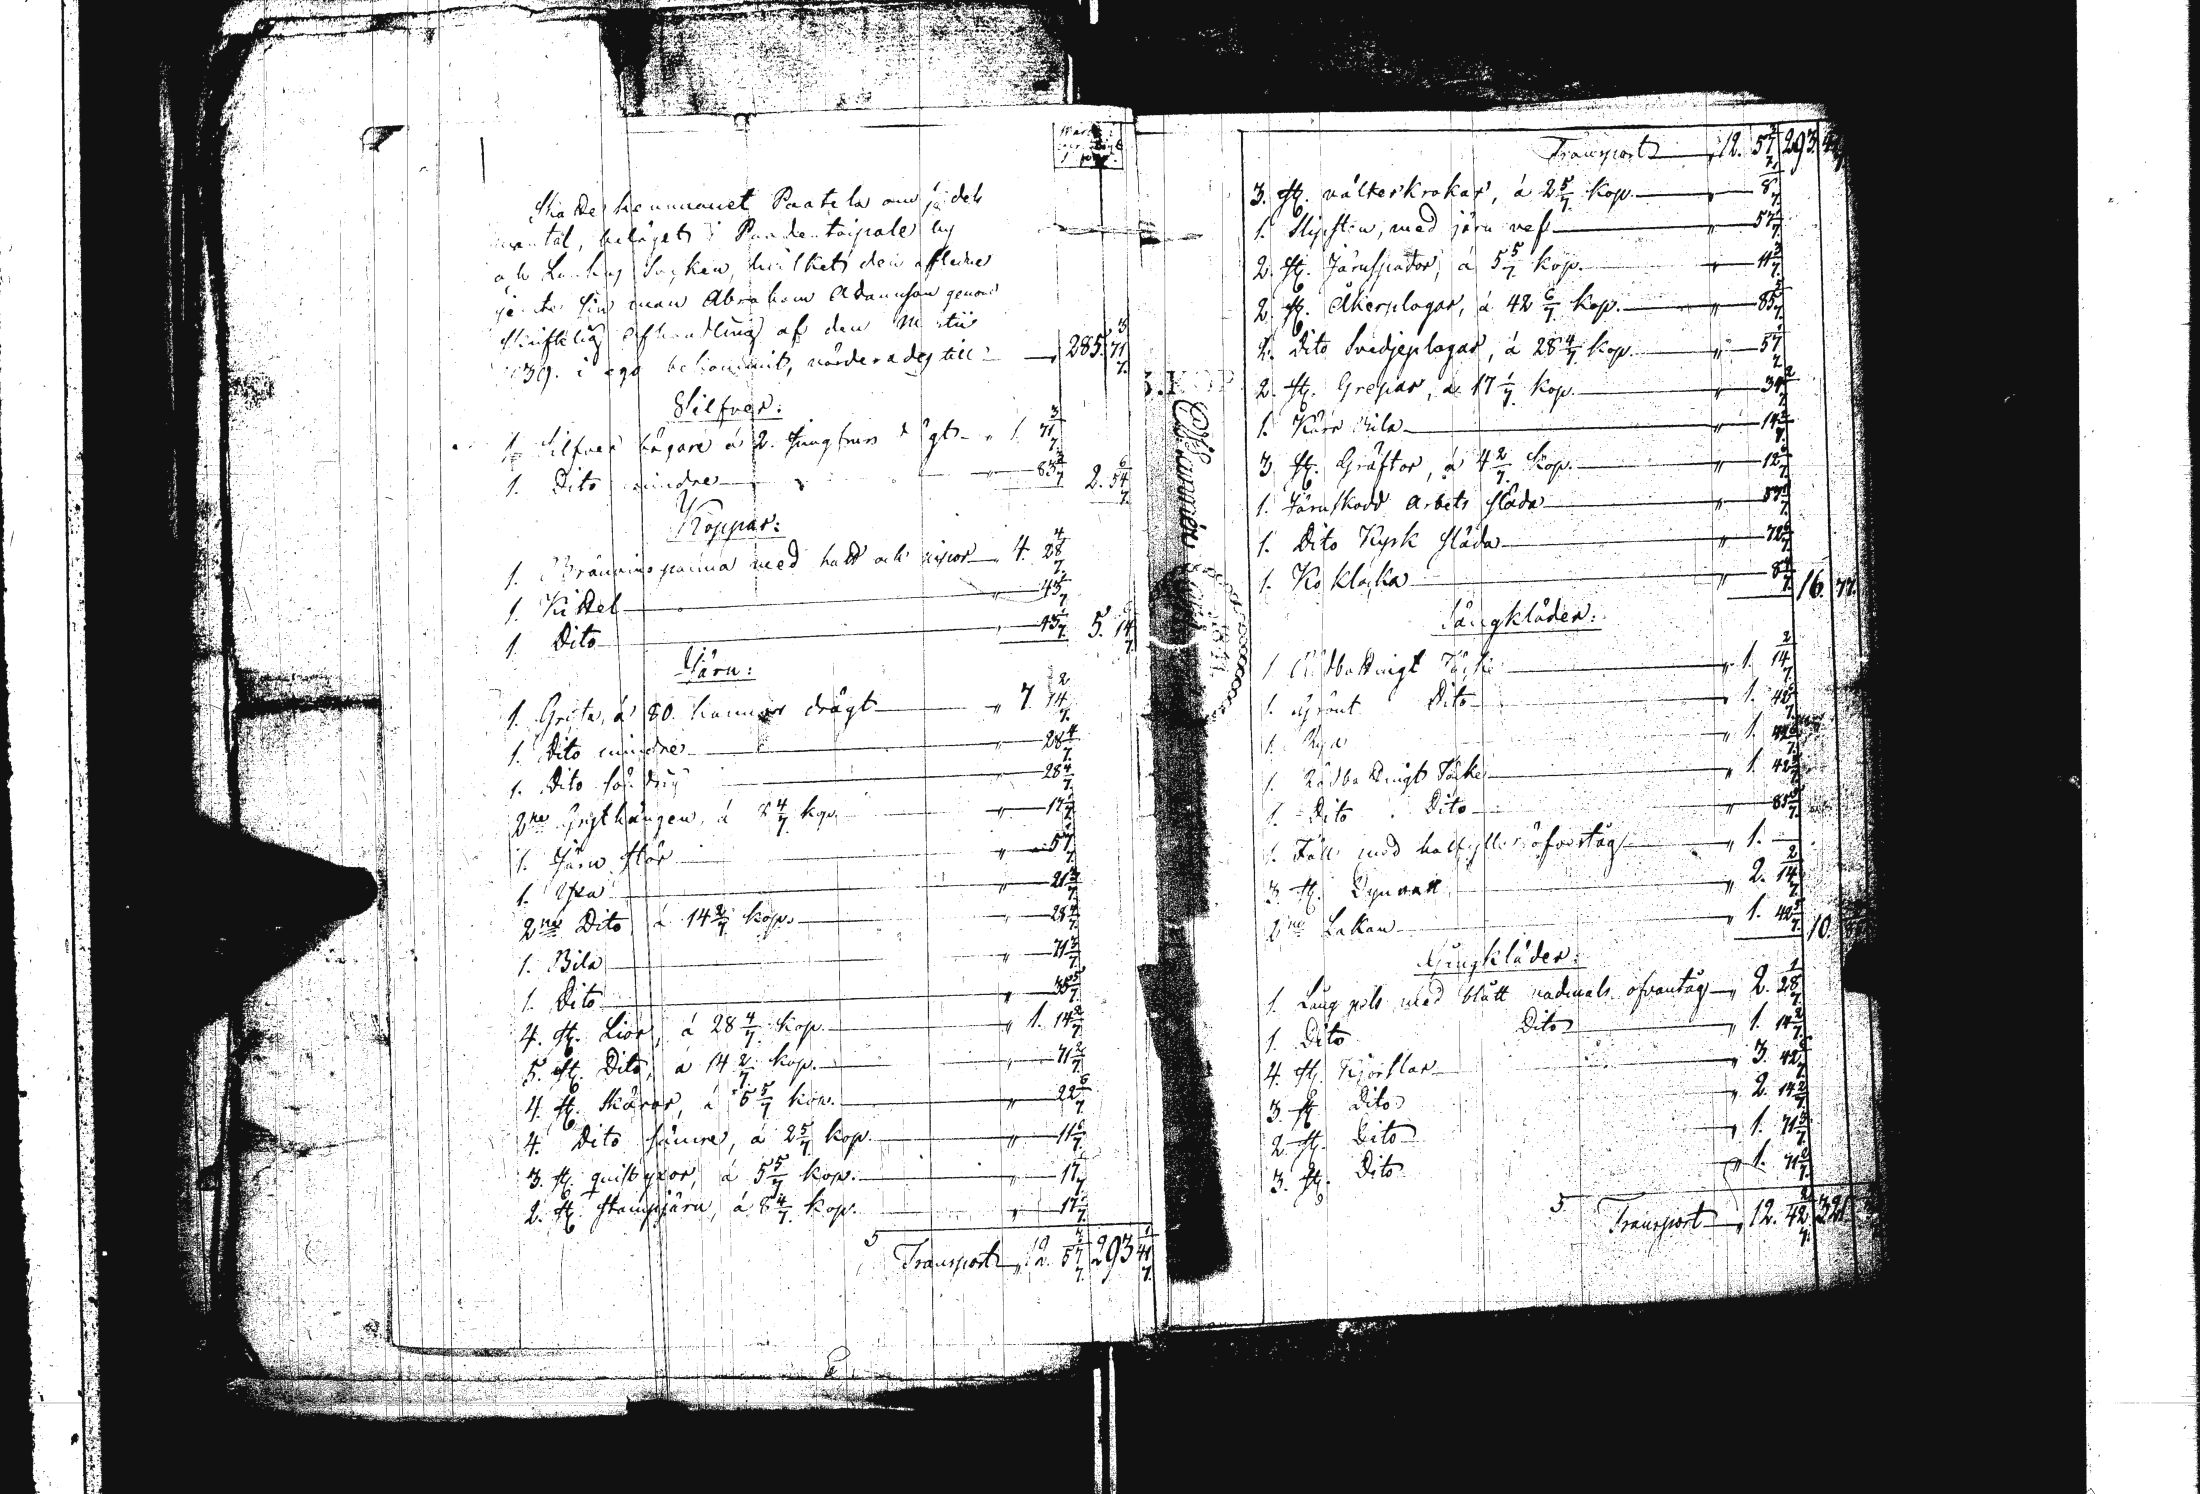 Skattehemmanet Paatela om 1/3 dels
mantal, beläget i Paadentaipale by
och Laukas Socken, hvilket den aflidne
jemte sin man Abraham Adamsson genom
Skriftelig Afhandling af den Martii
1839. i ego bekommit, värderades till „ 285. 71 3/7.
Silfver:
1. Silfver bägare á 2. jungfrurs drägt „ 1. 71 3/7
1. Dito mindre „ 83 3/7 2. 54 6/7.
Koppar:
1. Brännvinspanna med hatt och pipor „ 4. 28 4/7.
1. Kittel „ 43
1. Dito „ 43 5. 14
Järn:
1. Gryta, á 80. kannors drägt „ 7. 14 2/7.
1. Dito mindre „ 28 4/7.
1. Dito „ 28 4/7.
2ne Grythängen, á 8 4/7 kop. „ 17 1/7.
1. Järn stör „ 57 1/7
1. Yxa „ 21 3/7
2ne Dito á 14 2/7 kop. „ 28 4/7.
1. Bila „ 71 3/7.
1. Dito „ 35 5/7.
4. St. Lior, á 28 4/7 kop. „ 1. 14 2/7
5. St. Dito, á 14 2/7 kop. „ 71 3/7
4. St. Skäror, á 5 5/7 kop. „ 22 6/7.
4. Dito sämre, á 2 5/7 kop. „ 11 6/7.
3. St. quistyxor, á 5 5/7 kop. „ 17 1/7
2. St. Stampjärn, á 8 4/7 kop. „ 17 1/7.
Transport „ 12. 57 3/7. 293. 41 1/7.
Transport „ 12. 57 3/7. 293. 41 1/7
3. St. välterkrokar, á 2 5/7 kop. „ 8 1/7
1. Slipsten, med järn vef „ 57 1/7
2. St. Järnspador, á 5 5/7 kop. „ 11 3/7.
2. St. Åkerplogar, á 42 6/7 kop. „ 85 5/7.
2. Dito Svedjeplogar, á 28 4/7 kop. „ 57 1/7
2. St. Grepar, á 17 1/7 kop. „ 34 2/7
1. Kärr Bila „ 14 2/7.
3. St. Gräftor, á 4 2/7 kop. „ 12 6/7
1. Järnskodd Arbets släda „ 57 1/7.
1. Dito Kyrk släda „ 72
1. Ko klocka „ 8 4/7. 16. 77.
Sängkläder:
1. Rödbottnigt Täcke „ 1. 14 2/7.
1. Grönt Dito „ 1. 42 6/7.
1. Rya „ 1. 42 6/7.
1. Rödbottnigt Täcke „ 1. 42 6/7
1. Dito Dito „ 85 5/7.
1. Fäll med halfylle öfvertåg „ 1. —
3. St. Dynvarr „ 2. 14 2/7
2ne Lakan „ 1. 42 6/7. 10.
Gångkläder:
1. Lång pels med blått vadmals öfvantåg „ 2. 28
1. Dito Dito „ 1. 14 2/7.
4. St. Kjortlar „ 3. 42 6/7.
3. St. Dito „ 2. 14 2/7
2. St. Dito „ 1. 71 3/7.
3. St. Dito „ 1. 71 3/7.
Transport „ 12. 42 321